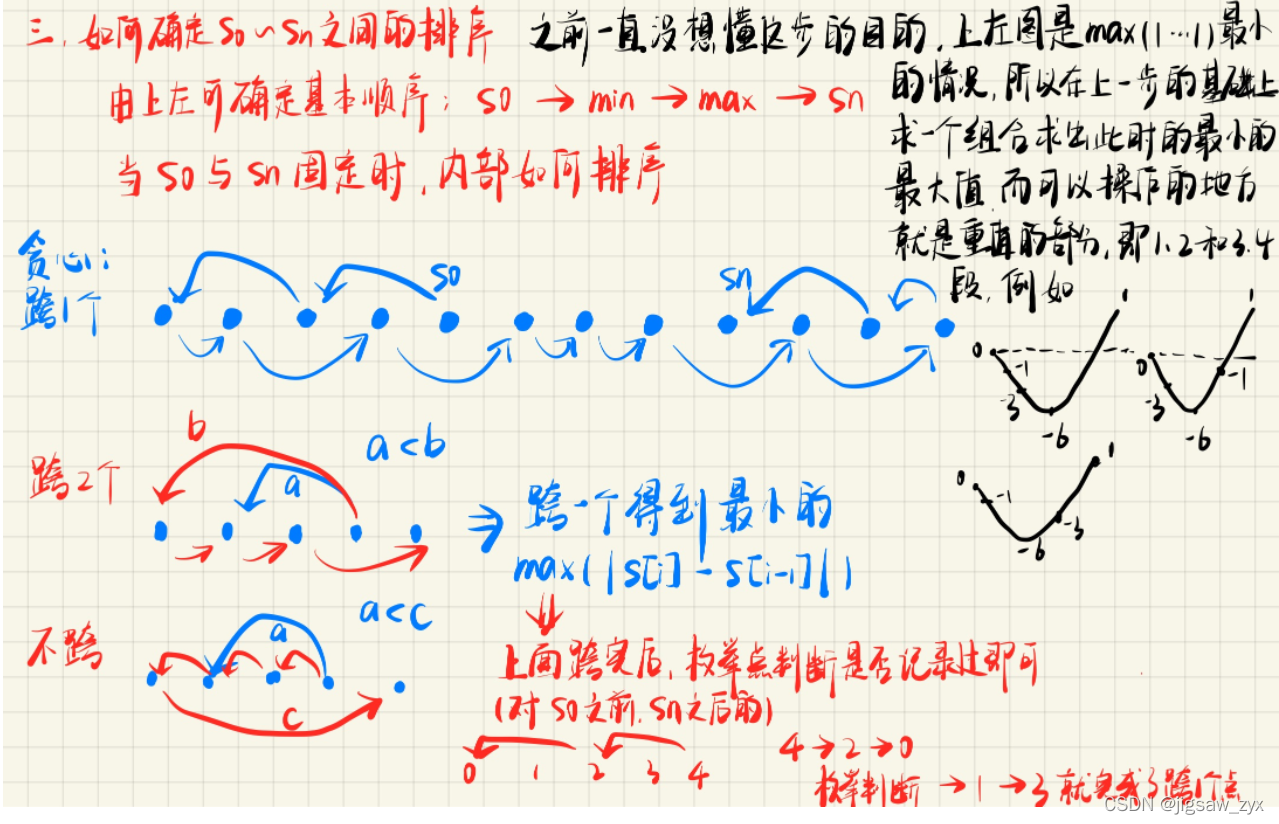 三、如何确定S0~Sn之间的排序
由上左可确定基本顺序: S0 → min → max → Sn
当S0与Sn固定时,内部如何排序
之前一直没想懂这步的目的,上左图是max(|…|)最小
的情况,所以在上一步的基础上
求一个组合求出此时的最小的
最大值,而可以操作的地方
就是重复的部分,即1.2和3.4
段,例如
贪心:
跨1个
S0
Sn
0
-1
-3
-6
1
0
-3
-6
-1
1
0
-1
-6
-3
1
跨2个
b
a
a<b
⇒ 跨一个得到最小的
max(|S[i] - S[i-1]|)
不跨
a
c
a<c
上面跨完后,枚举点判断是否记录过即可
(对S0之前,Sn之后的)
0 1 2 3 4
4→2→0
枚举判断 →1→3 就完成了跨1个点
CSDN @jigsaw_zyx